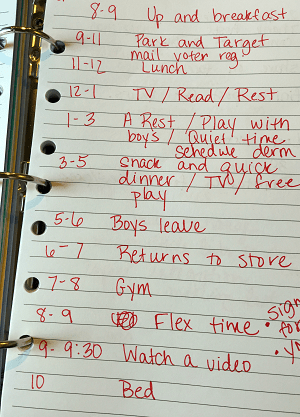 8-9 Up and breakfast
9-11 Park and Target
mail voter reg
11-12 Lunch
12-1 TV / Read / Rest
1-3 A Rest / Play with
boys / Quiet time
schedule derm
3-5 Snack and quick
dinner / TV / free
play
5-6 Boys leave
6-7 Returns to store
7-8 Gym
8-9 Flex time
9-9:30 Watch a video
10 Bed